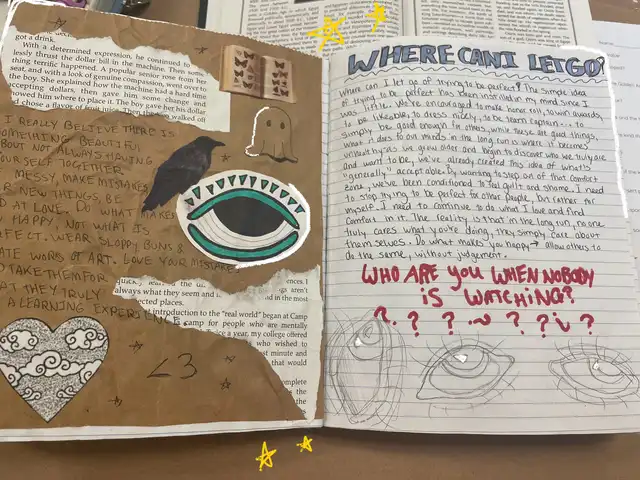 got a drink.
With a determined expression, he continued to
lessly thrust the dollar bill in the machine. Then some
thing terrific happened. A popular senior rose from his
seat, and with a look of genuine compassion, went over to
the boy. She explained how the machine had a hard time
accepting dollars, then gave him some change and
him where to place it. The boy gave her his dollar
d chose a flavor of fruit juice. Then the walked off
I REALLY BELIEVE THERE IS
SOMETHING BEAUTIFUL
ABOUT NOT ALWAYS HAVING
YOUR SELF TOGETHER.
MESSY, MAKE MISTAKES
NEW THINGS, BE
AT LOVE. DO WHAT MAKES
HAPPY, NOT WHAT IS
PERFECT. WEAR SLOPPY BUNS &
WORKS OF ART. LOVE YOUR MISTAKES
TAKE THEM FOR
THEY TRULY
A LEARNING EXPERIENCE
<3
always what they seem and
in the most
ected places.
introduction to the "real world" began at Camp
camp for people who are mentally
ce a year, my college offered
who wished to
minute and
that would
WHERE CAN I LET GO?
Where can I let go of trying to be perfect? The simple idea
of trying to be perfect has been instilled in my mind since I
was little. We're encouraged to make honor roll, to win awards,
to be likeable, to dress nicely, to be team captain... to
simply be good enough for others. While these are good things,
what it does to our minds in the long run is where it becomes
unhealthy. As we grow older and begin to discover who we truly are
and want to be, we've already created this idea of what's
"generally" acceptable. By wanting to step out of that comfort
zone, we've been conditioned to feel guilt and shame. I need
to stop trying to be perfect for other people, but rather for
myself. I need to continue to do what I love and find
comfort in it. The reality is that in the long run, no one
truly cares what you're doing, they simply care about
themselves. Do what makes you happy → allow others to
do the same, without judgement.
WHO ARE YOU WHEN NOBODY
IS WATCHING?
? ? ? ? ? ? ?